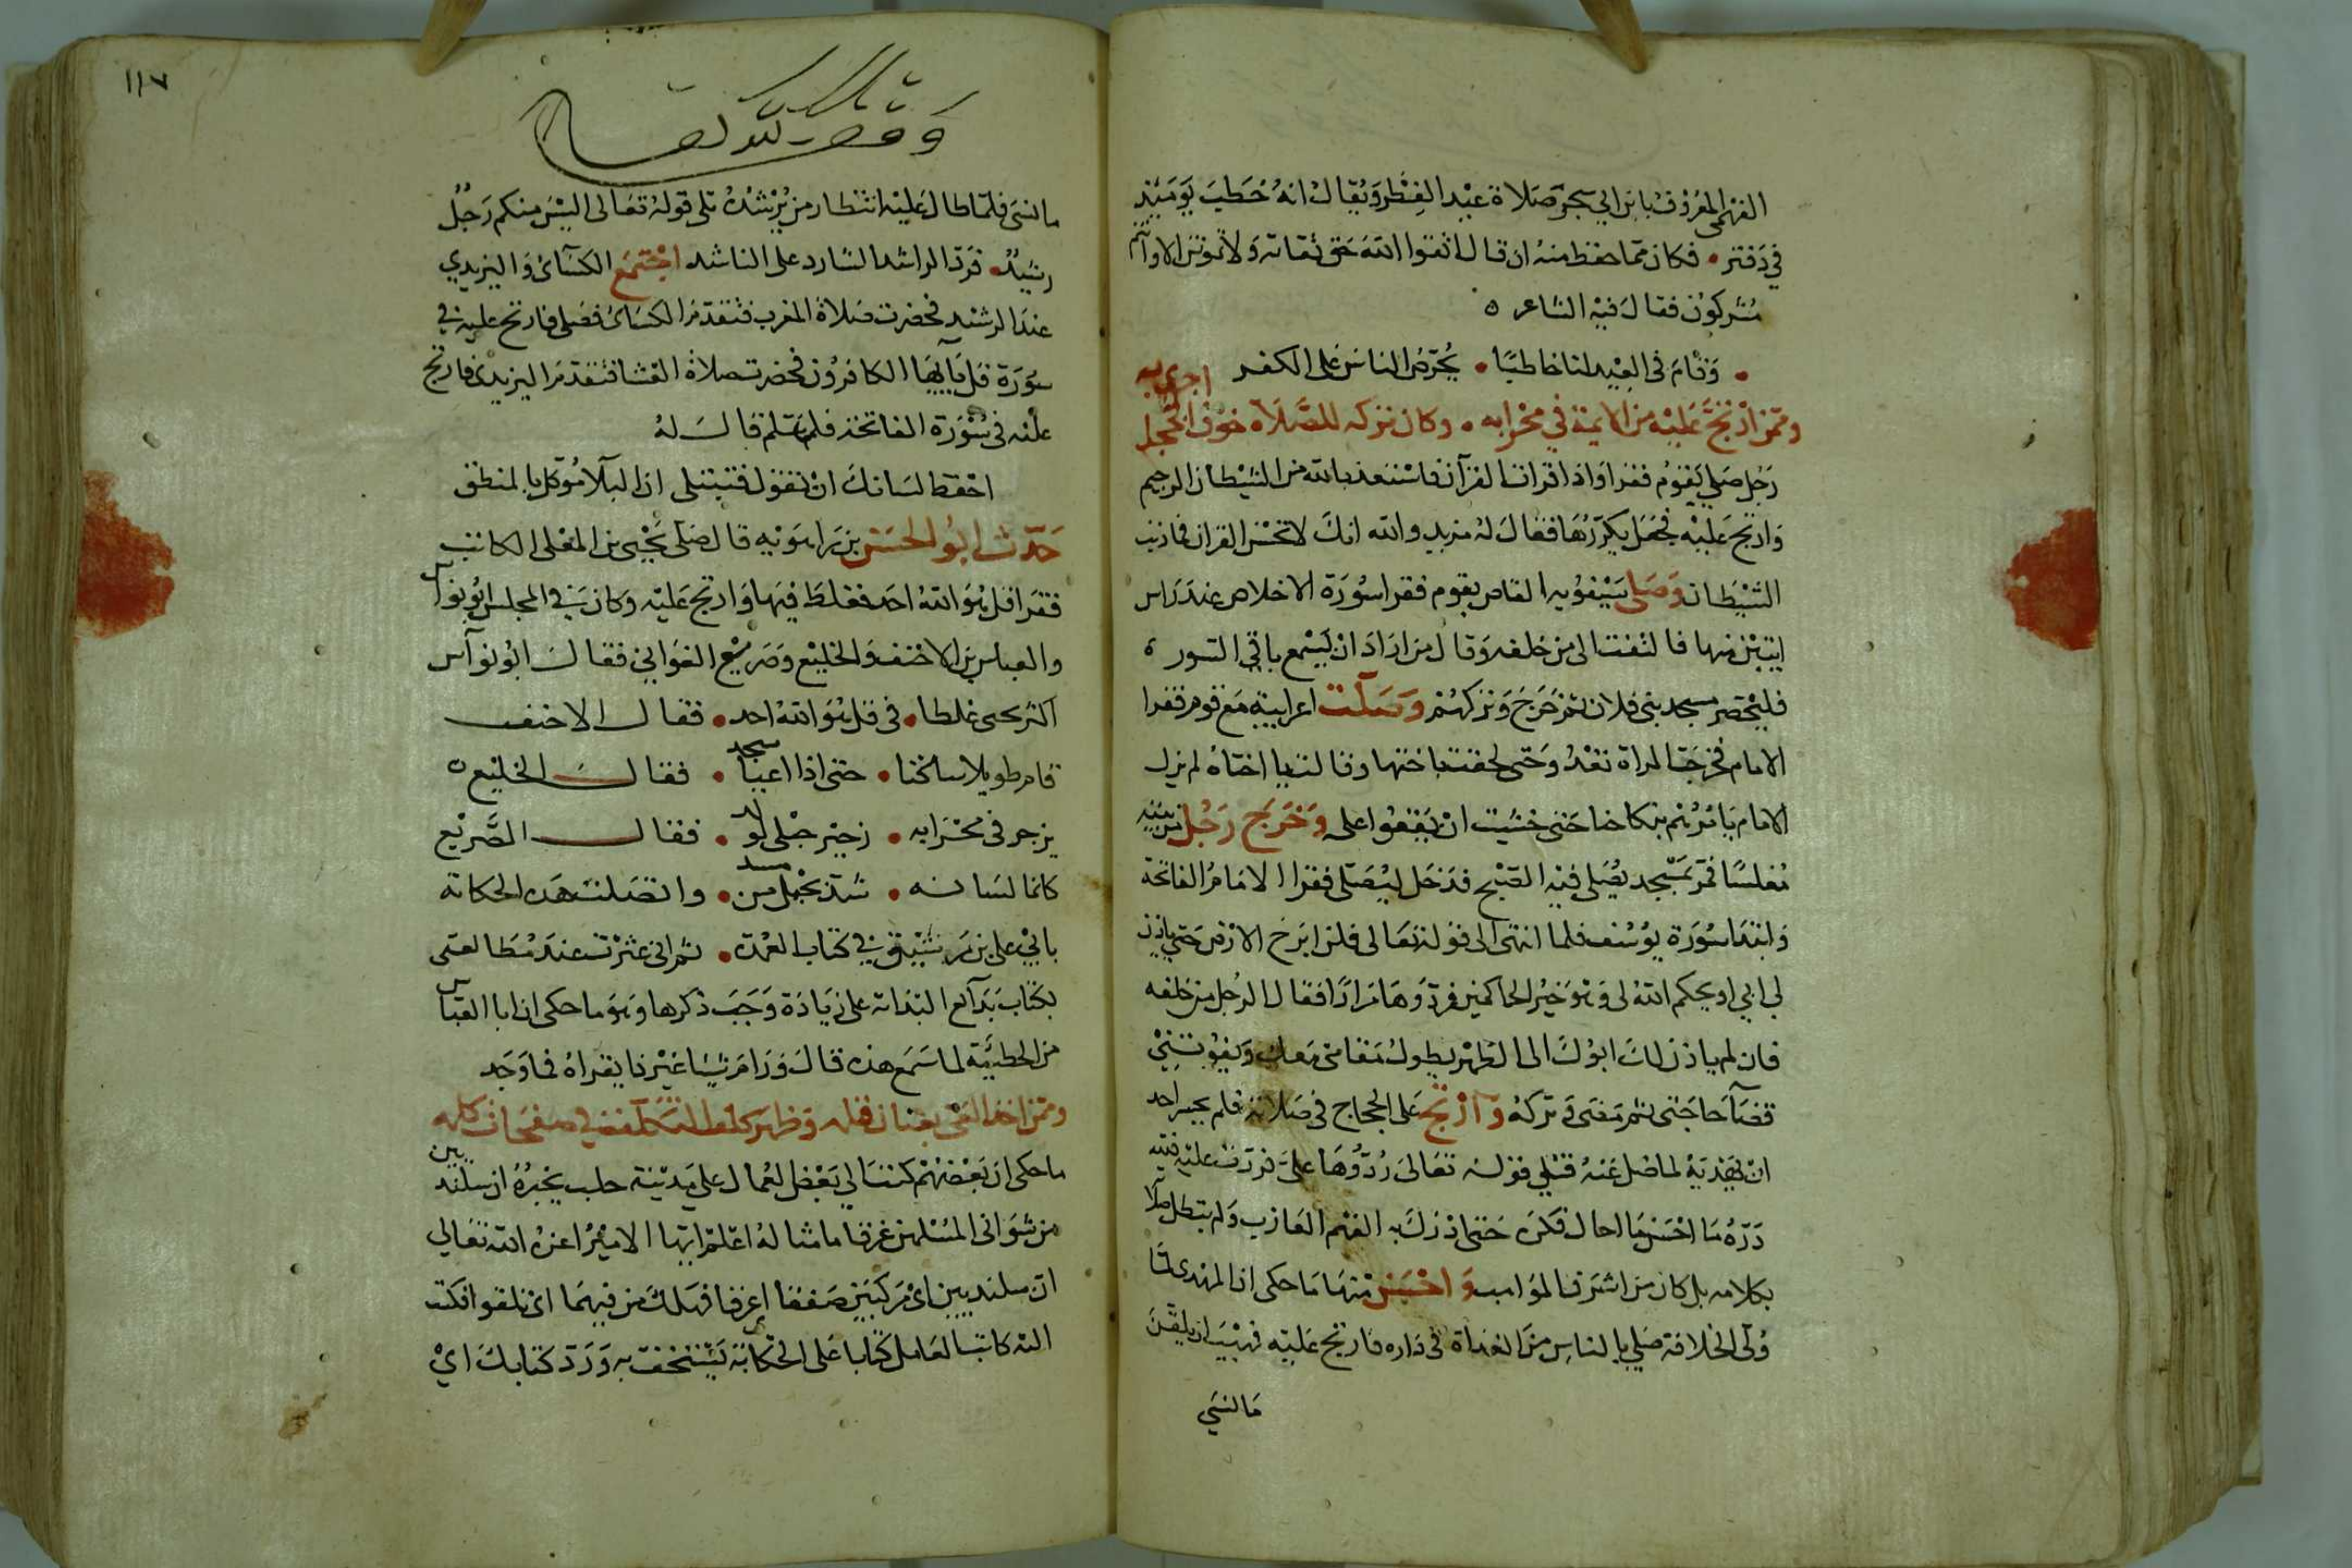 الفهمى المعروف بابن ابي سجرة صلاة عيد الفطر ويقال انه خطب يومئذ
في دفتر • فكان مما حفظ منه ان قال اتقوا الله حق تقاته ولا تموتن الا وانتم
مشركون فقال فيه الشاعر ه
• وقام فى العيد لنا خاطبًا • يحرّض الناس على الكفر
وممن ارتجّ عليه من الايمة في محرابه • وكان تركه للصلاة خوف الخجل احرى به
رجل صلى بقوم فقرا واذا قرات القرآن فاستعذ بالله من الشيطان الرجيم
وارتج عليه فجعل يكررها فقال له مزبد والله انك لا تحسن القران فما ذنب
الشيطان وصلى سيفويه القاص بقوم فقرا سورة الاخلاص عند راس
ايتين منها فالتفت الى من خلفه وقال من اراد ان يسمع باقي السور ه
فليحضر مسجد بنى فلان ثم خرج وتركهم وصلت اعرابية مع قوم فقرا
الامام فخرجت المراة تعدو حتى لحقت باختها وقالت يا اختاه لم يزل
الامام يامرهم بنكاحنا حتى خشيت ان يقعوا على وخرج رجل من بيته
مغلسًا فمر بمسجد يصلى فيه الصبح فدخل ليصلى فقرا الامام الفاتحة
وابتدا سورة يوسف فلما انتهى الى قوله تعالى فلن ابرح الارض حتى ياذن
لي ابي او يحكم الله لى وهو خير الحاكمين فرددها مرارًا فقال الرجل من خلفه
فان لم ياذن لك ابوك الى الظهر يطول مقامى معك ويفوتني
قضآ حاجتى ثم مضى وتركه وارتج على الحجاج في صلاته فلم يجسر احد
ان يهديه لما ضل عنه قتلي قوله تعالى ردّوها علىّ فردت عليه فتية
درّه ما احسن ما احال فكره حتى ادرك به الفهم العازب ولم يبطل صلا
بكلامه بل كان من اشرف المواهب واحسن منها ما حكى ان المهدى لما
ولّى الخلافة صلى بالناس من الغداة فى داره فارتج عليه فهيب ان يلقن
ما نسى
١١٧
ما نسى فلما طال عليه انتظار من يرشده تلى قوله تعالى اليس منكم رجل
رشيد • فرد الراشد الشارد على الناشد اجتمع الكسآئ واليزيدي
عند الرشيد فحضرت صلاة المغرب فتقدم الكسائ فصلى فارتج عليه في
سورة قل يآيها الكافرون فحضرت صلاة العشا فتقدم اليزيدى فارتج
عليه فى سورة الفاتحة فلما سلم قال له
احفظ لسانك ان تقول فتبتلى ان البلآ موكل بالمنطق
حدث ابو الحسن بن راهويه قال صلى يحيى بن المعلى الكاتب
فقرا قل هو الله احد فغلط فيها وارتج عليه وكان في المجلس ابو نوآس
والعباس بن الاحنف والخليع وصريع الغواني فقال ابو نوآس
اكثر يحيى غلطا • في قل هو الله احد • فقال الاحنف
قام طويلا ساكتا • حتى اذا اعيا سجد • فقال الخليع ه
يزحر فى محرابه • زحير حبلى لولد • فقال الصّريع
كانما لسانه • شد بحبل من مسد • واتصلت هذه الحكاية
بابي على بن رشيق في كتاب العمدة • ثم انى عثرت عند مطالعتى
بكتاب بدآئع البدائه على زيادة وجب ذكرها وهو ما حكى ان ابا العباس
من الحطيئة لما سمع هذه قال ورام شيئا غير ذا يقراه فما وجد
وممن اخذ العى بعنان قلمه وظهر كلف التكلف في صفحات كلمه
ما حكى ان بعضهم كتب الي بعض العمال على مدينة حلب يخبره ان سلنديين
من شوانى المسلمين غرقا ما مثاله اعلم ايها الامير اعزه الله تعالي
ان سلنديين اى مركبين صفقا اى غرقا فهلك من فيهما اى تلفوا فكتب
اليه كاتب العامل كتابا على الحكاية يستخف به ورد كتابك اىْ